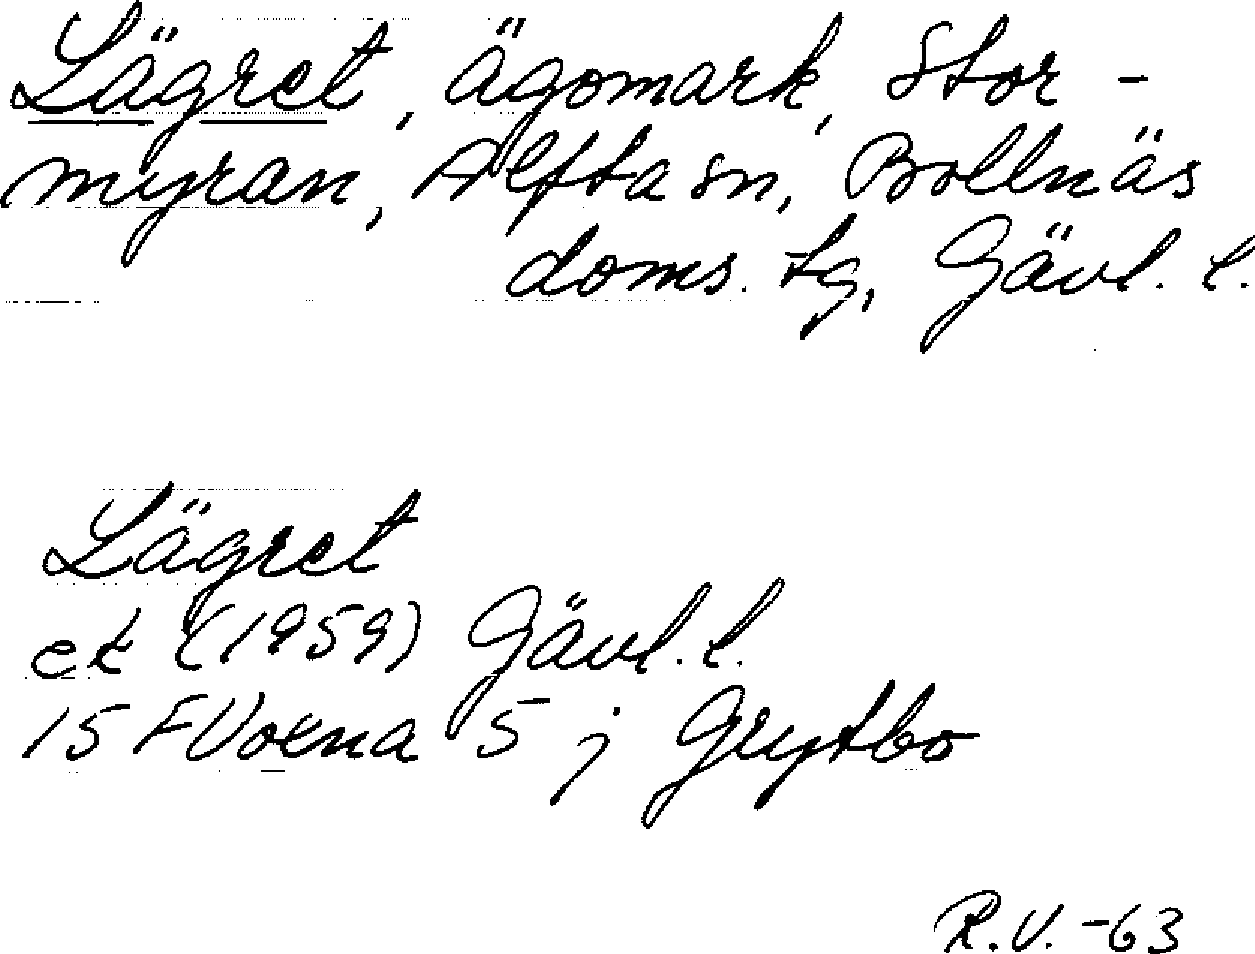 Lägret, ägomark, Stor-
myran, Alfta sn, Bollnäs
doms. tg, Gävl. l.
Lägret
ek (1959) Gävl. l.
15 F Voxna 5 j Grytbo
R.V. -63